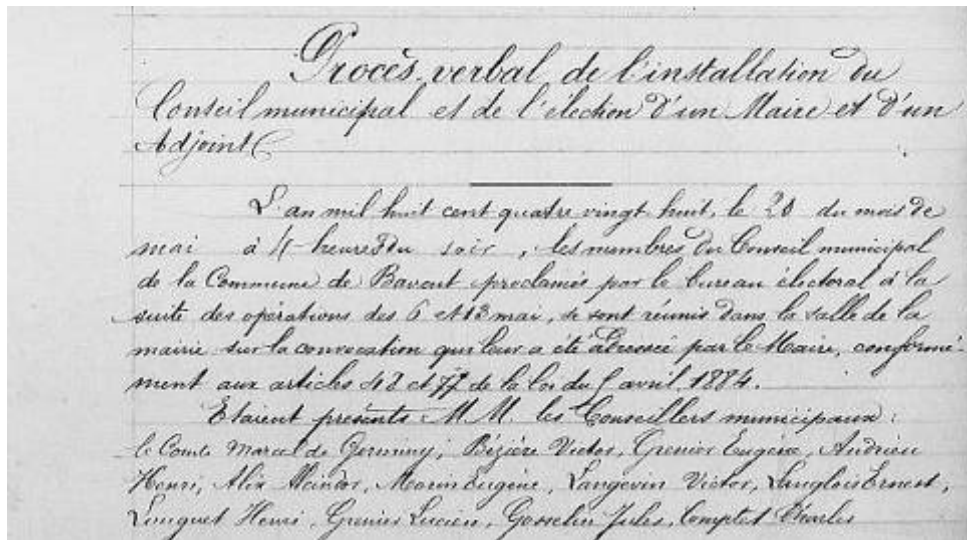 Procès verbal de l'installation du
Conseil municipal et de l'élection d'un Maire et d'un
Adjoint
L'an mil huit cent quatre vingt huit, le 20 du mois de
mai à 4 heures du soir, les membres du Conseil municipal
de la Commune de Bavent proclamés par le bureau électoral à la
suite des opérations des 6 et 13 mai, se sont réunis dans la salle de la
mairie sur la convocation qui leur a été adressée par le Maire, conformé-
ment aux articles 48 et 77 de la loi du 5 avril 1884.
Etaient présents M.M. les Conseillers municipaux :
le Comte Marcel de Germiny, Bézière Victor, Grenier Eugène, Andrieu
Henri, Alix Alcindor, Morin Eugène, Langevin Victor, Langlois Ernest,
Longuet Henri, Grenier Lucien, Gosselin Jules, Comptet Charles